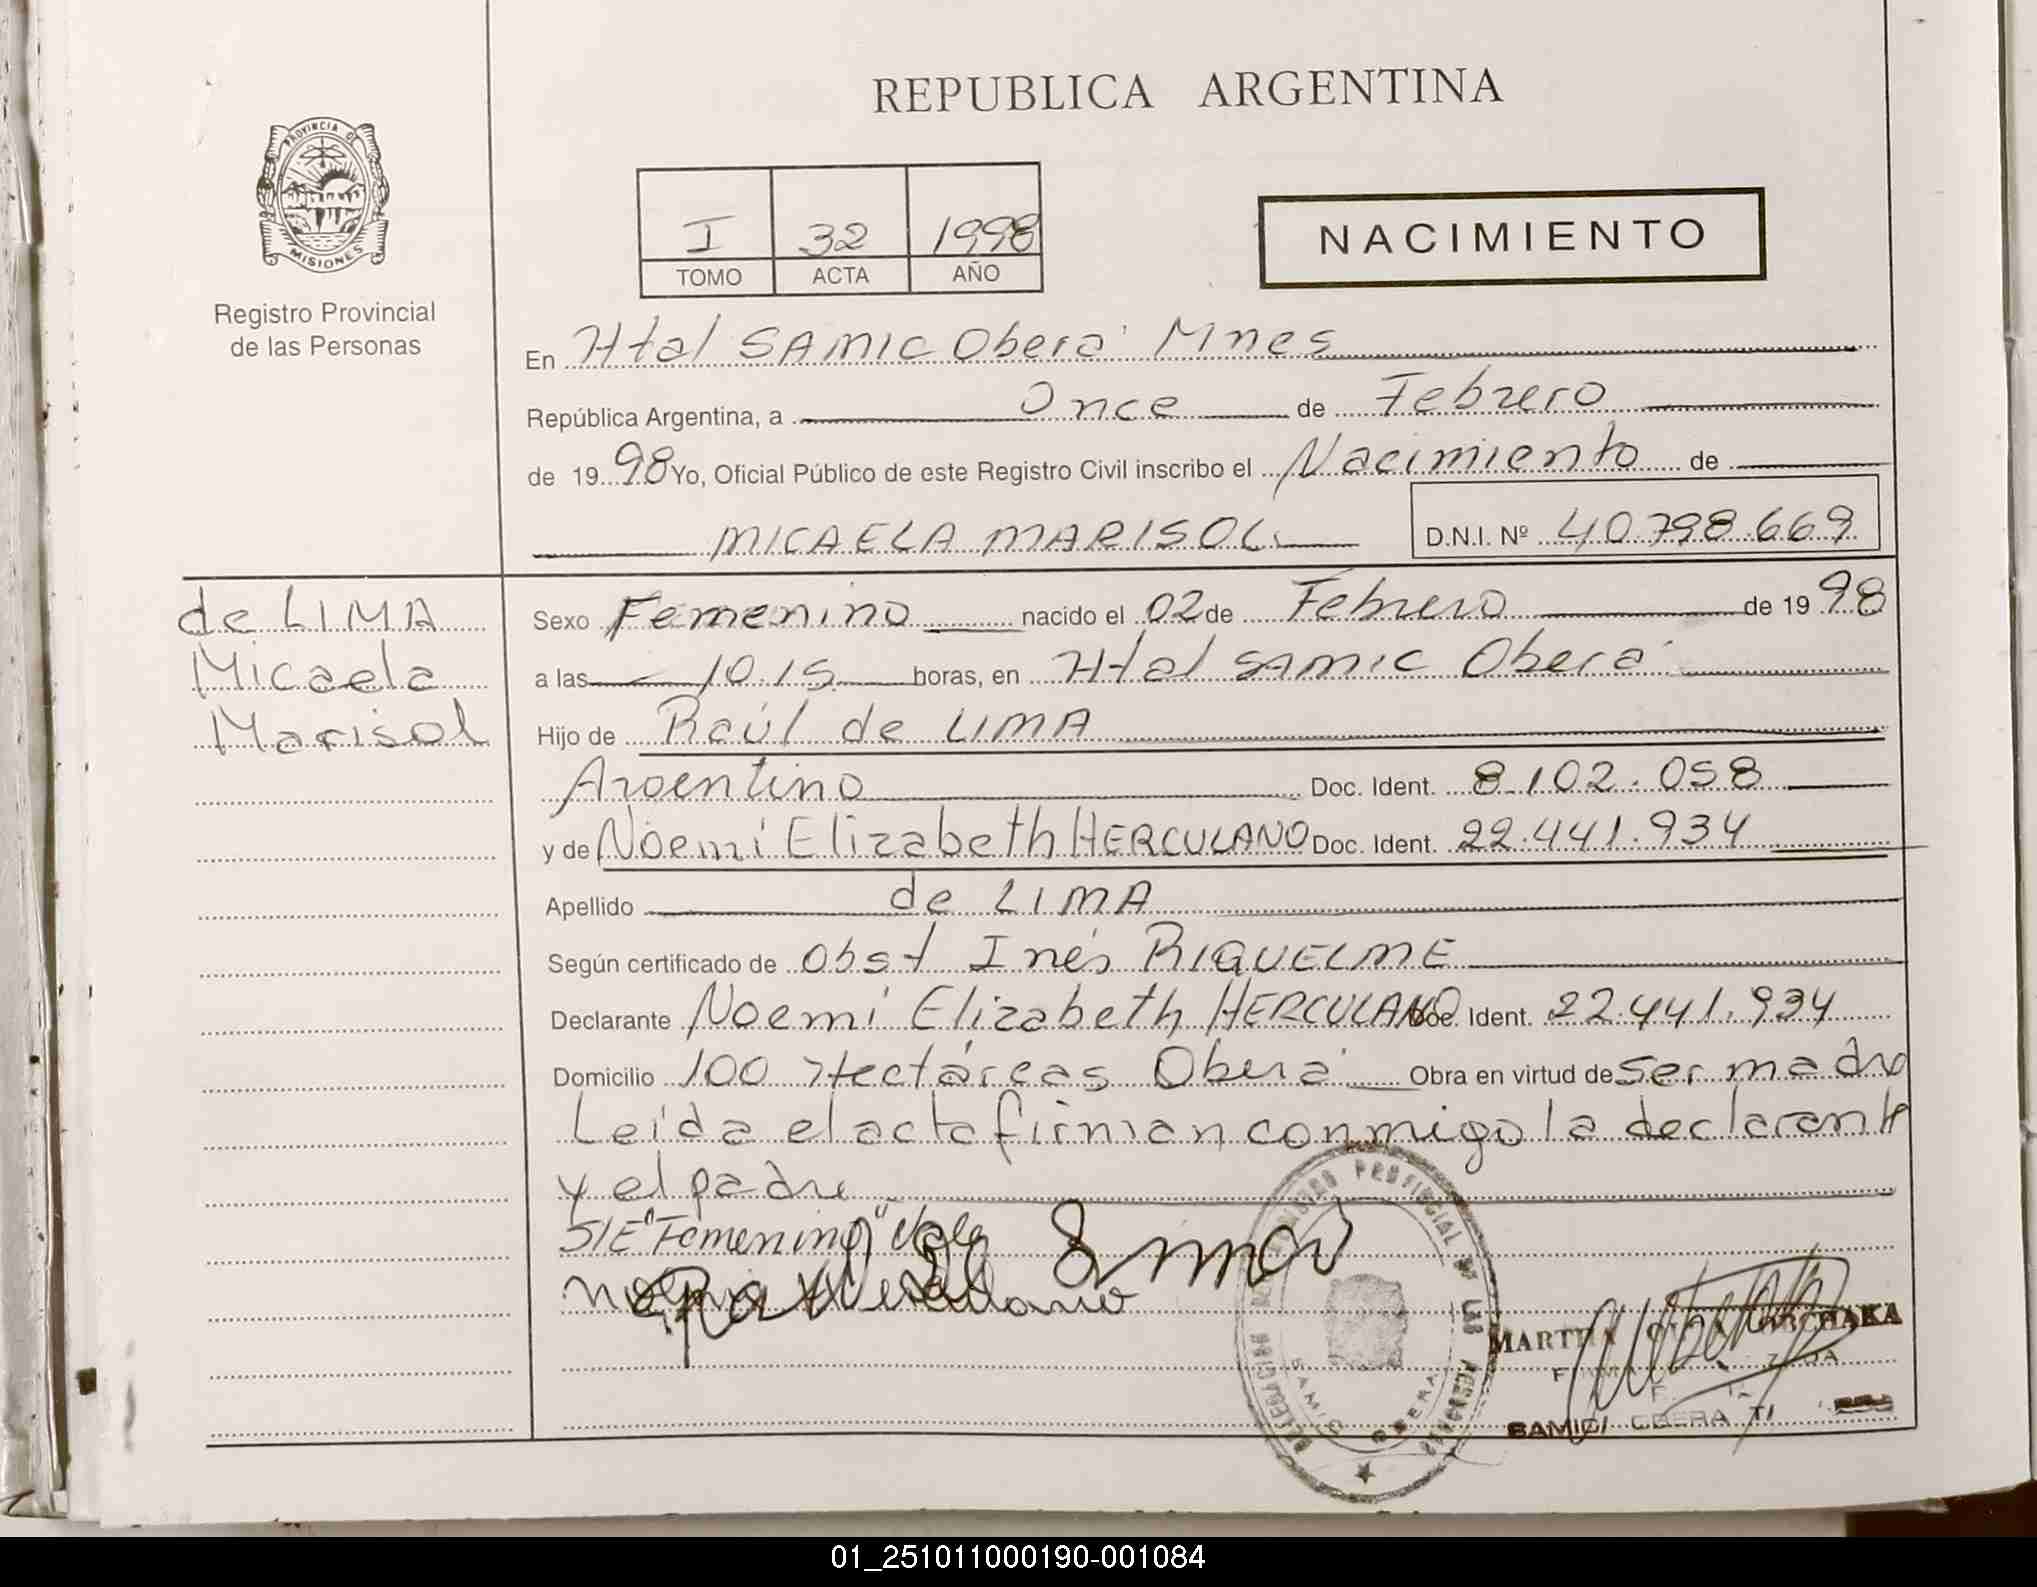 REPUBLICA ARGENTINA
PROVINCIA DE
MISIONES
Registro Provincial
de las Personas
I 32 1998
TOMO ACTA AÑO
NACIMIENTO
En Htal SAMIC Oberá Mnes
República Argentina, a Once de Febrero
de 1998 Yo, Oficial Público de este Registro Civil inscribo el Nacimiento de
MICAELA MARISOL. D.N.I. Nº 40.798.669
de LIMA
Micaela
Marisol
Sexo Femenino nacido el 02 de Febrero de 1998
a las 10.15 horas, en Htal SAMIC Oberá
Hijo de Raúl de LIMA
Argentino Doc. Ident. 8.102.058
y de Noemí Elizabeth HERCULANO Doc. Ident. 22.441.934
Apellido de LIMA
Según certificado de Obst Inés RIQUELME
Declarante Noemí Elizabeth HERCULANO Doc. Ident. 22.441.934
Domicilio 100 Hectáreas Oberá Obra en virtud de ser madre
Leída el acta firman conmigo la declarante
y el padre
S/E "Femenino" Vale
MARTHA
SAMIC OBERA
01_251011000190-001084